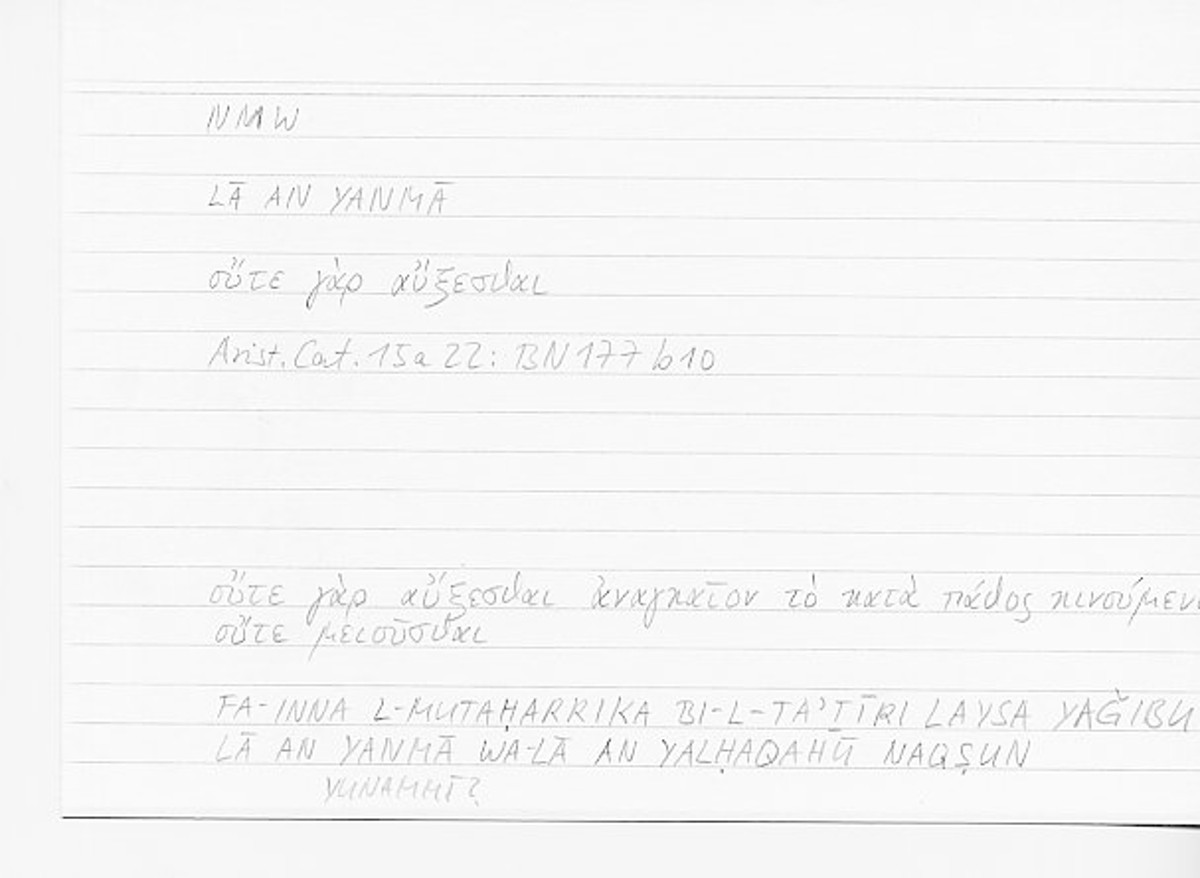 NMW
LĀ AN YANMĀ
οὔτε γὰρ αὔξεσθαι
Arist. Cat. 15a 22: BN 177 b 10
οὔτε γὰρ αὔξεσθαι ἀναγκαῖον τὸ κατὰ πάθος κινούμεν
οὔτε μειοῦσθαι
FA-INNA L-MUTAḤARRIKA BI-L-TAʾṮĪRI LAYSA YAǦIBU
LĀ AN YANMĀ WA-LĀ AN YALḤAQAHŪ NAQṢUN
YUNAMMĪ?